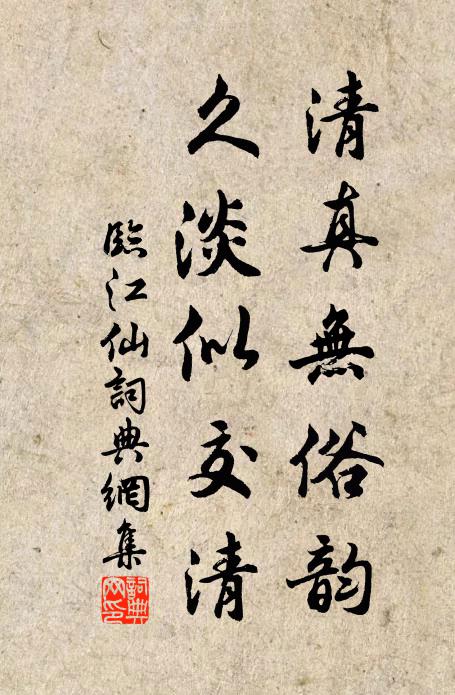 清真無俗韵
久淡似交清
臨江仙詞典網集
詞典